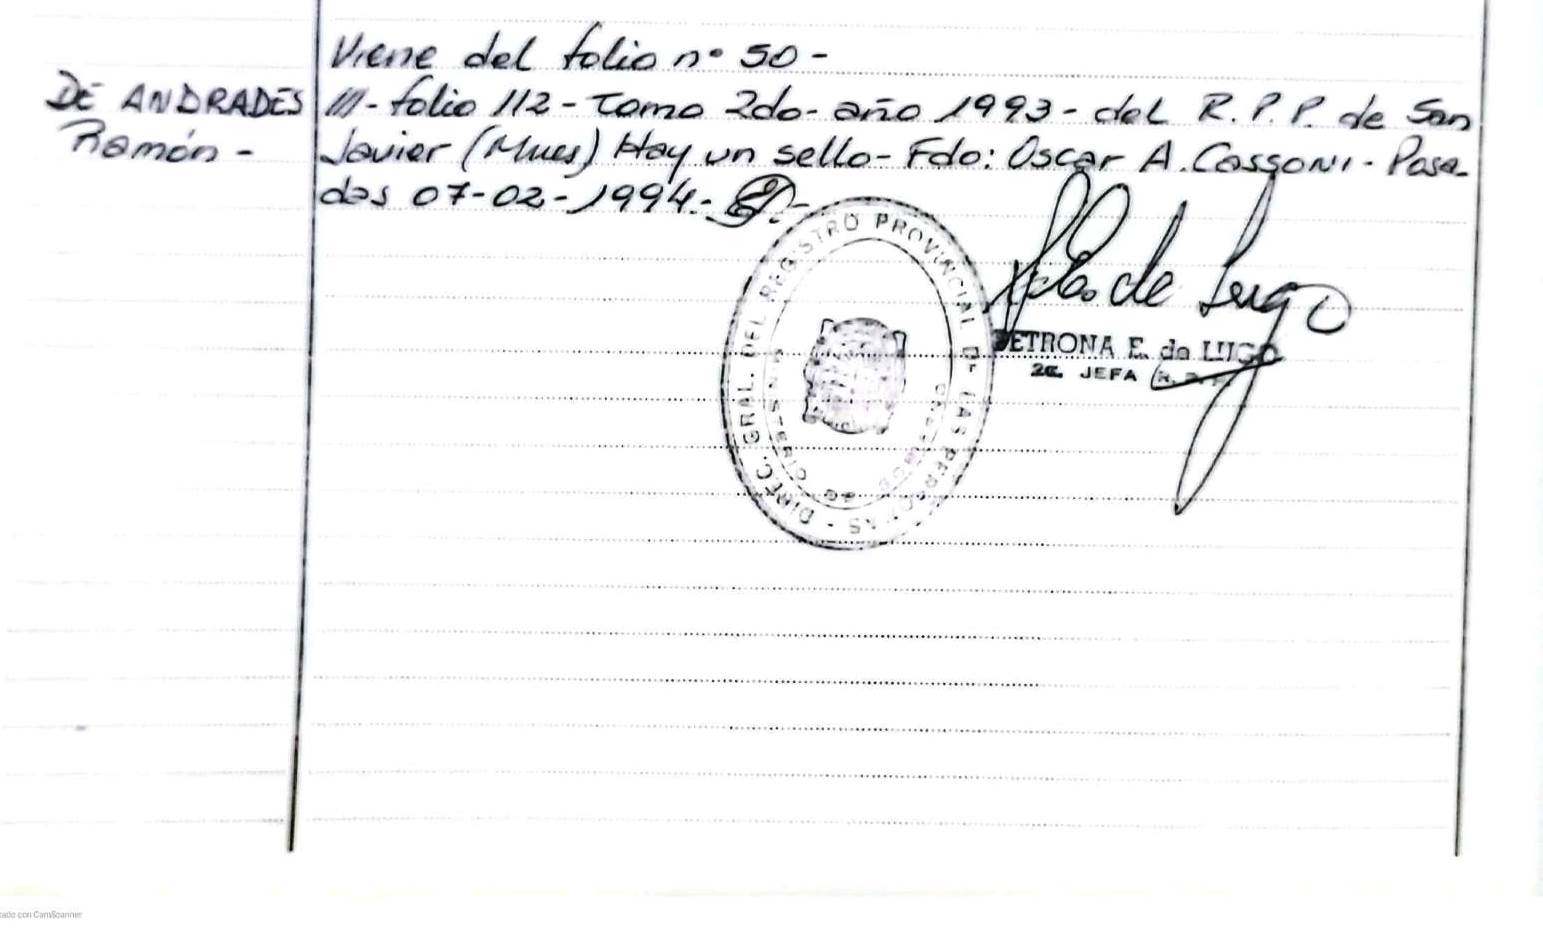 Viene del folio nº 50-
DE ANDRADES
Ramón-
111- folio 112- Tomo 2do- año 1993- del R.P.P. de San
Javier (Mnes) Hay un sello- Fdo: Oscar A. Cassoni- Posa-
das 07-02-1994.-
DIREC. GRAL. DEL REGISTRO PROVINCIAL DE LAS PERSONAS
de Lugo
PETRONA E. de LUGO
2a. JEFA
ado con CamScanner